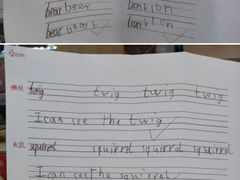 bear bear lion lion
bear bear lion lion
twig twig twig twig
I can see the twig
squirrel squirrel squirrel squirrel
I can see the squirrel